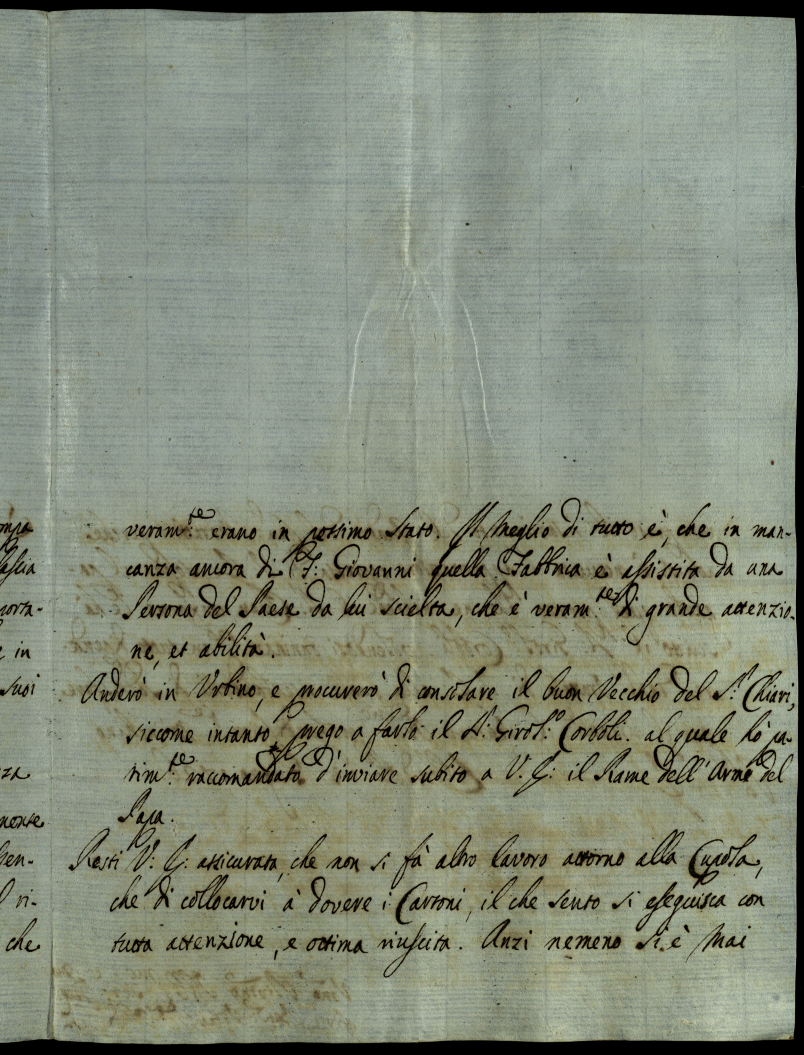 veram.te erano in pessimo stato. Il meglio di tutto è, che in man-
canza ancora di F: Giovanni quella Fabbrica è assistita da una
Persona del Paese da lui scielta, che è veram.te di grande attenzio-
ne, et abilità.
Anderò in Urbino, e procurerò di consolare il buon Vecchio del S.r Chiari,
siccome intanto prego a farlo il S.r Girol.o Corboli. al quale hò pa-
rim.te raccomandato d'inviare subito a V. S: il Rame dell'Arme del
Papa.
Resti V: S: assicurata, che non si fà altro lavoro attorno alla Cupola,
che di collocarvi à dovere i Cartoni, il che sento si eseguisca con
tutta attenzione, e ottima riuscita. Anzi nemeno si è mai
ascia
porta-
e in
suoi
nza
mente
ri-
che